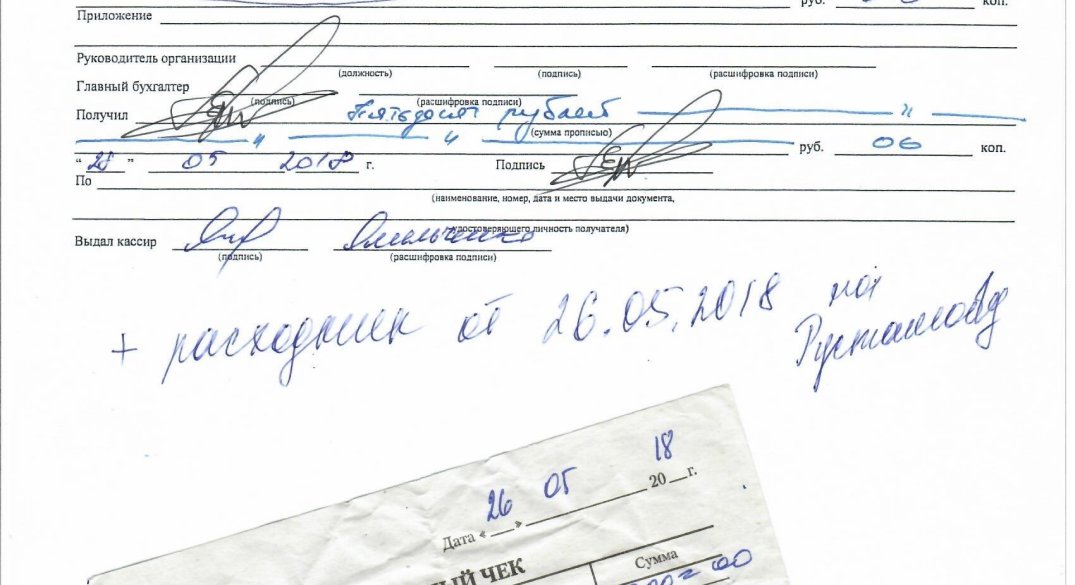 руб. коп.
Приложение
Руководитель организации
(должность) (подпись) (расшифровка подписи)
Главный бухгалтер
(подпись) (расшифровка подписи)
Получил Пятьдесят рублей
(сумма прописью)
руб. 00 коп.
"28" 05 2018 г. Подпись
По
(наименование, номер, дата и место выдачи документа,
удостоверяющего личность получателя)
Выдал кассир
(подпись) (расшифровка подписи)
+ расходник от 26.05.2018 на
26 05 18
Дата « » 20 г.
ЫЙ ЧЕК
Сумма